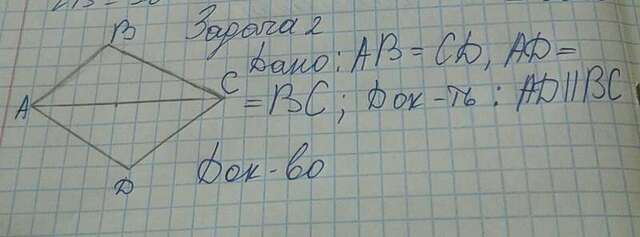 Задача 2
B
Дано: AB = CD, AD =
C
A
= BC; Док-ть: AD||BC
Док-во
D